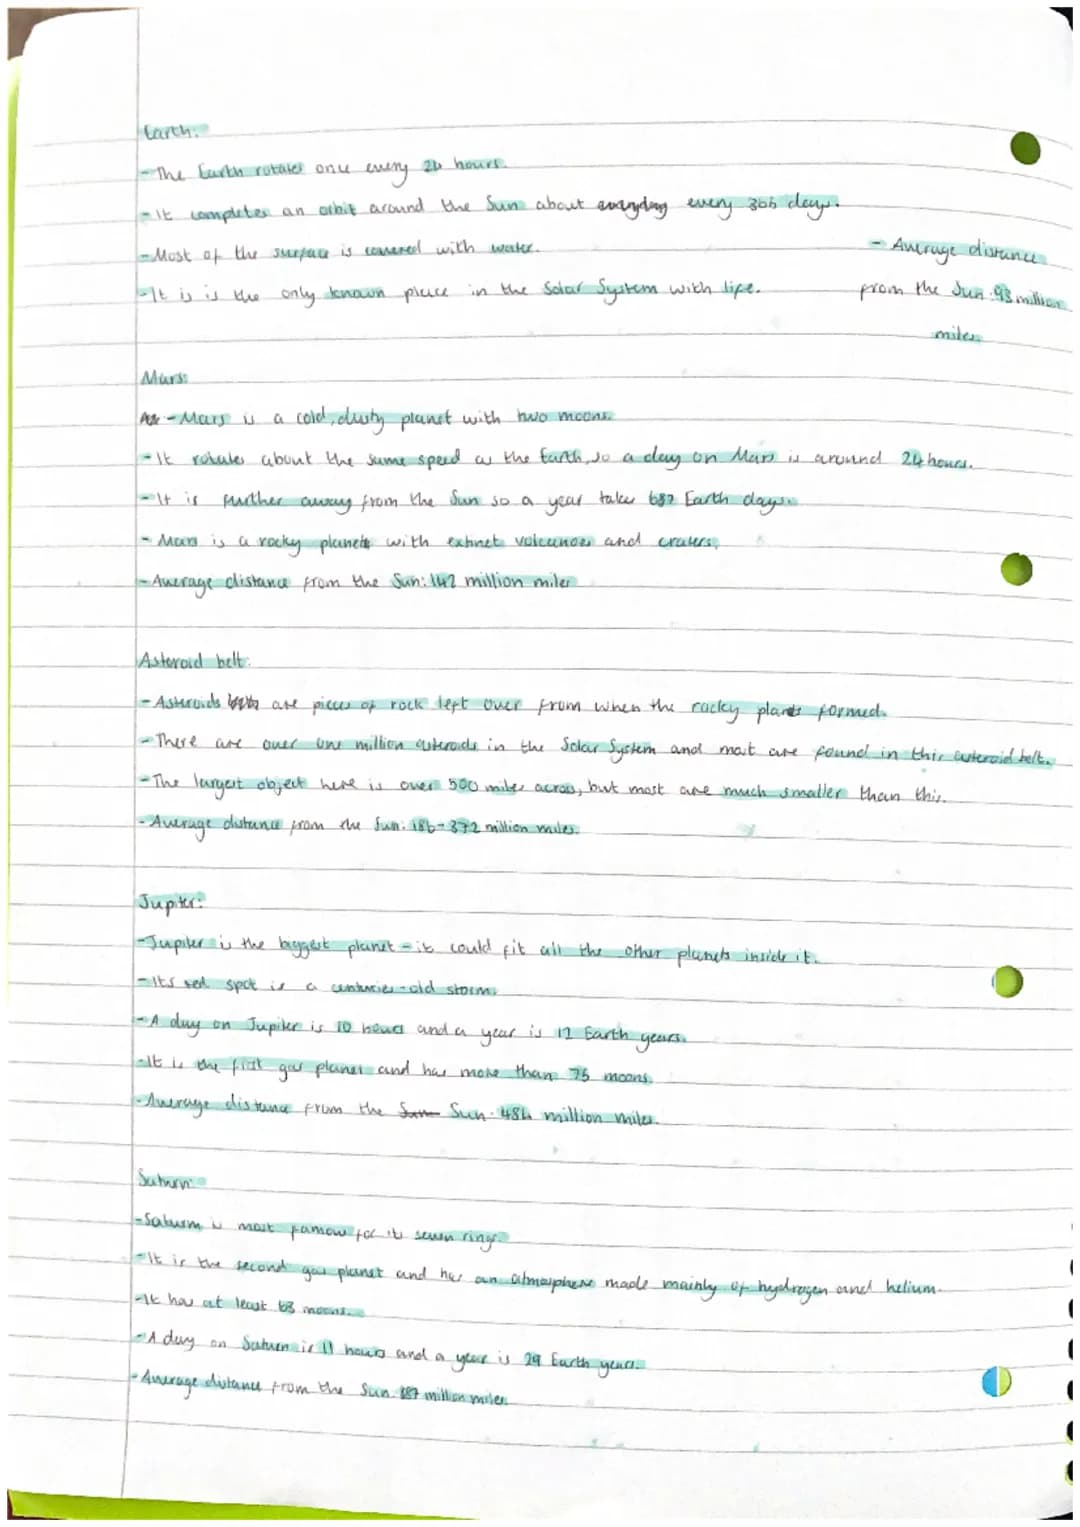 Earth:
- The Earth rotates once every 24 hours.
- It completes an orbit around the Sun about everyday every 365 days.
- Most of the surface is covered with water.
- It is is the only known place in the Solar System with life.
- Average distance
from the Sun: 93 million
miles
Mars:
- Mars is a cold, dusty planet with two moons.
- It rotates about the same speed as the Earth, so a day on Mars is around 24 hours.
- It is further away from the Sun so a year takes 687 Earth days.
- Mars is a rocky planet with extinct volcanoes and craters.
- Average distance from the Sun: 142 million miles
Asteroid belt:
- Asteroids are pieces of rock left over from when the rocky planets formed.
- There are over one million asteroids in the Solar System and most are found in this asteroid belt.
- The largest object here is over 500 miles across, but most are much smaller than this.
- Average distance from the Sun: 186-372 million miles.
Jupiter:
- Jupiter is the biggest planet - it could fit all the other planets inside it.
- Its red spot is a centuries-old storm.
- A day on Jupiter is 10 hours and a year is 12 Earth years.
- It is the first gas planet and has more than 75 moons.
- Average distance from the Sun: 484 million miles.
Saturn:
- Saturn is most famous for its seven rings.
- It is the second gas planet and has an atmosphere made mainly of hydrogen and helium.
- It has at least 63 moons.
- A day on Saturn is 11 hours and a year is 29 Earth years.
- Average distance from the Sun: 887 million miles